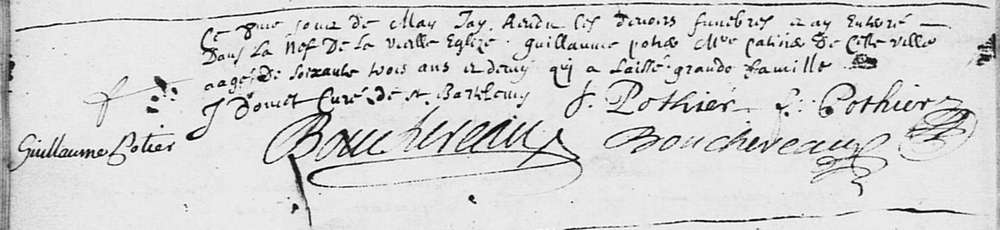 Ce 8me jour de May J'ay Rendu les devoirs funebres et ay Enterré
Dans La Nef De La vieille Eglize Guillaume potier Mre patiner De Cette Ville
aagé De Soixante trois ans et demy qui a Laissé grande famille
J Douvet Curé de st Barthlemy J. Pothier F. Pothier
Guillaume Potier Bouchereau Bouchereau